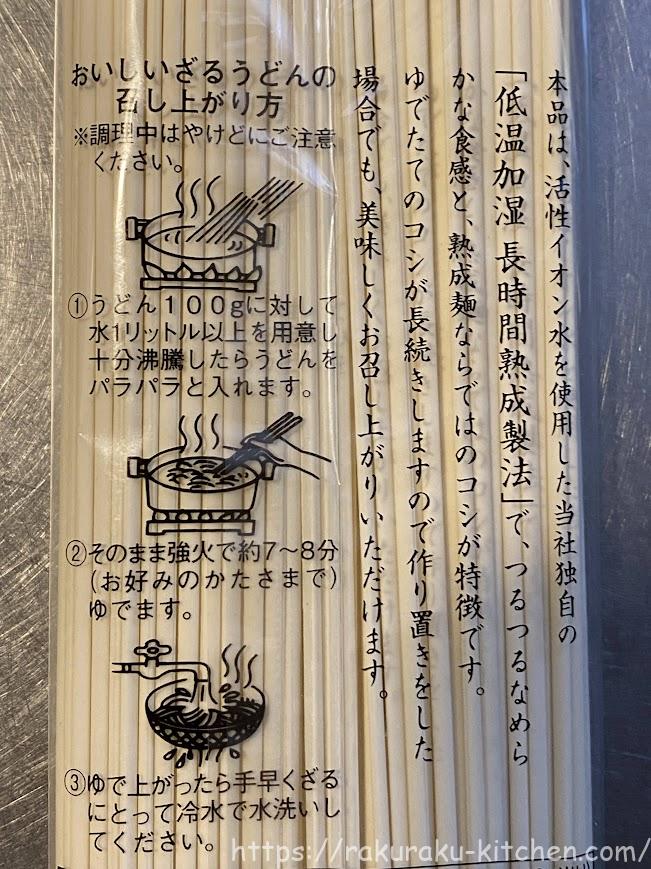 本品は、活性イオン水を使用した当社独自の
「低温加湿 長時間熟成製法」で、つるつるなめら
かな食感と、熟成麺ならではのコシが特徴です。
ゆでたてのコシが長続きしますので作り置きをした
場合でも、美味しくお召し上がりいただけます。
おいしいざるうどんの
召し上がり方
※調理中はやけどにご注意
ください。
①うどん100gに対して
水1リットル以上を用意し
十分沸騰したらうどんを
パラパラと入れます。
②そのまま強火で約7〜8分
(お好みのかたさまで)
ゆでます。
③ゆで上がったら手早くざる
にとって冷水で水洗いし
てください。
https://rakuraku-kitchen.com/